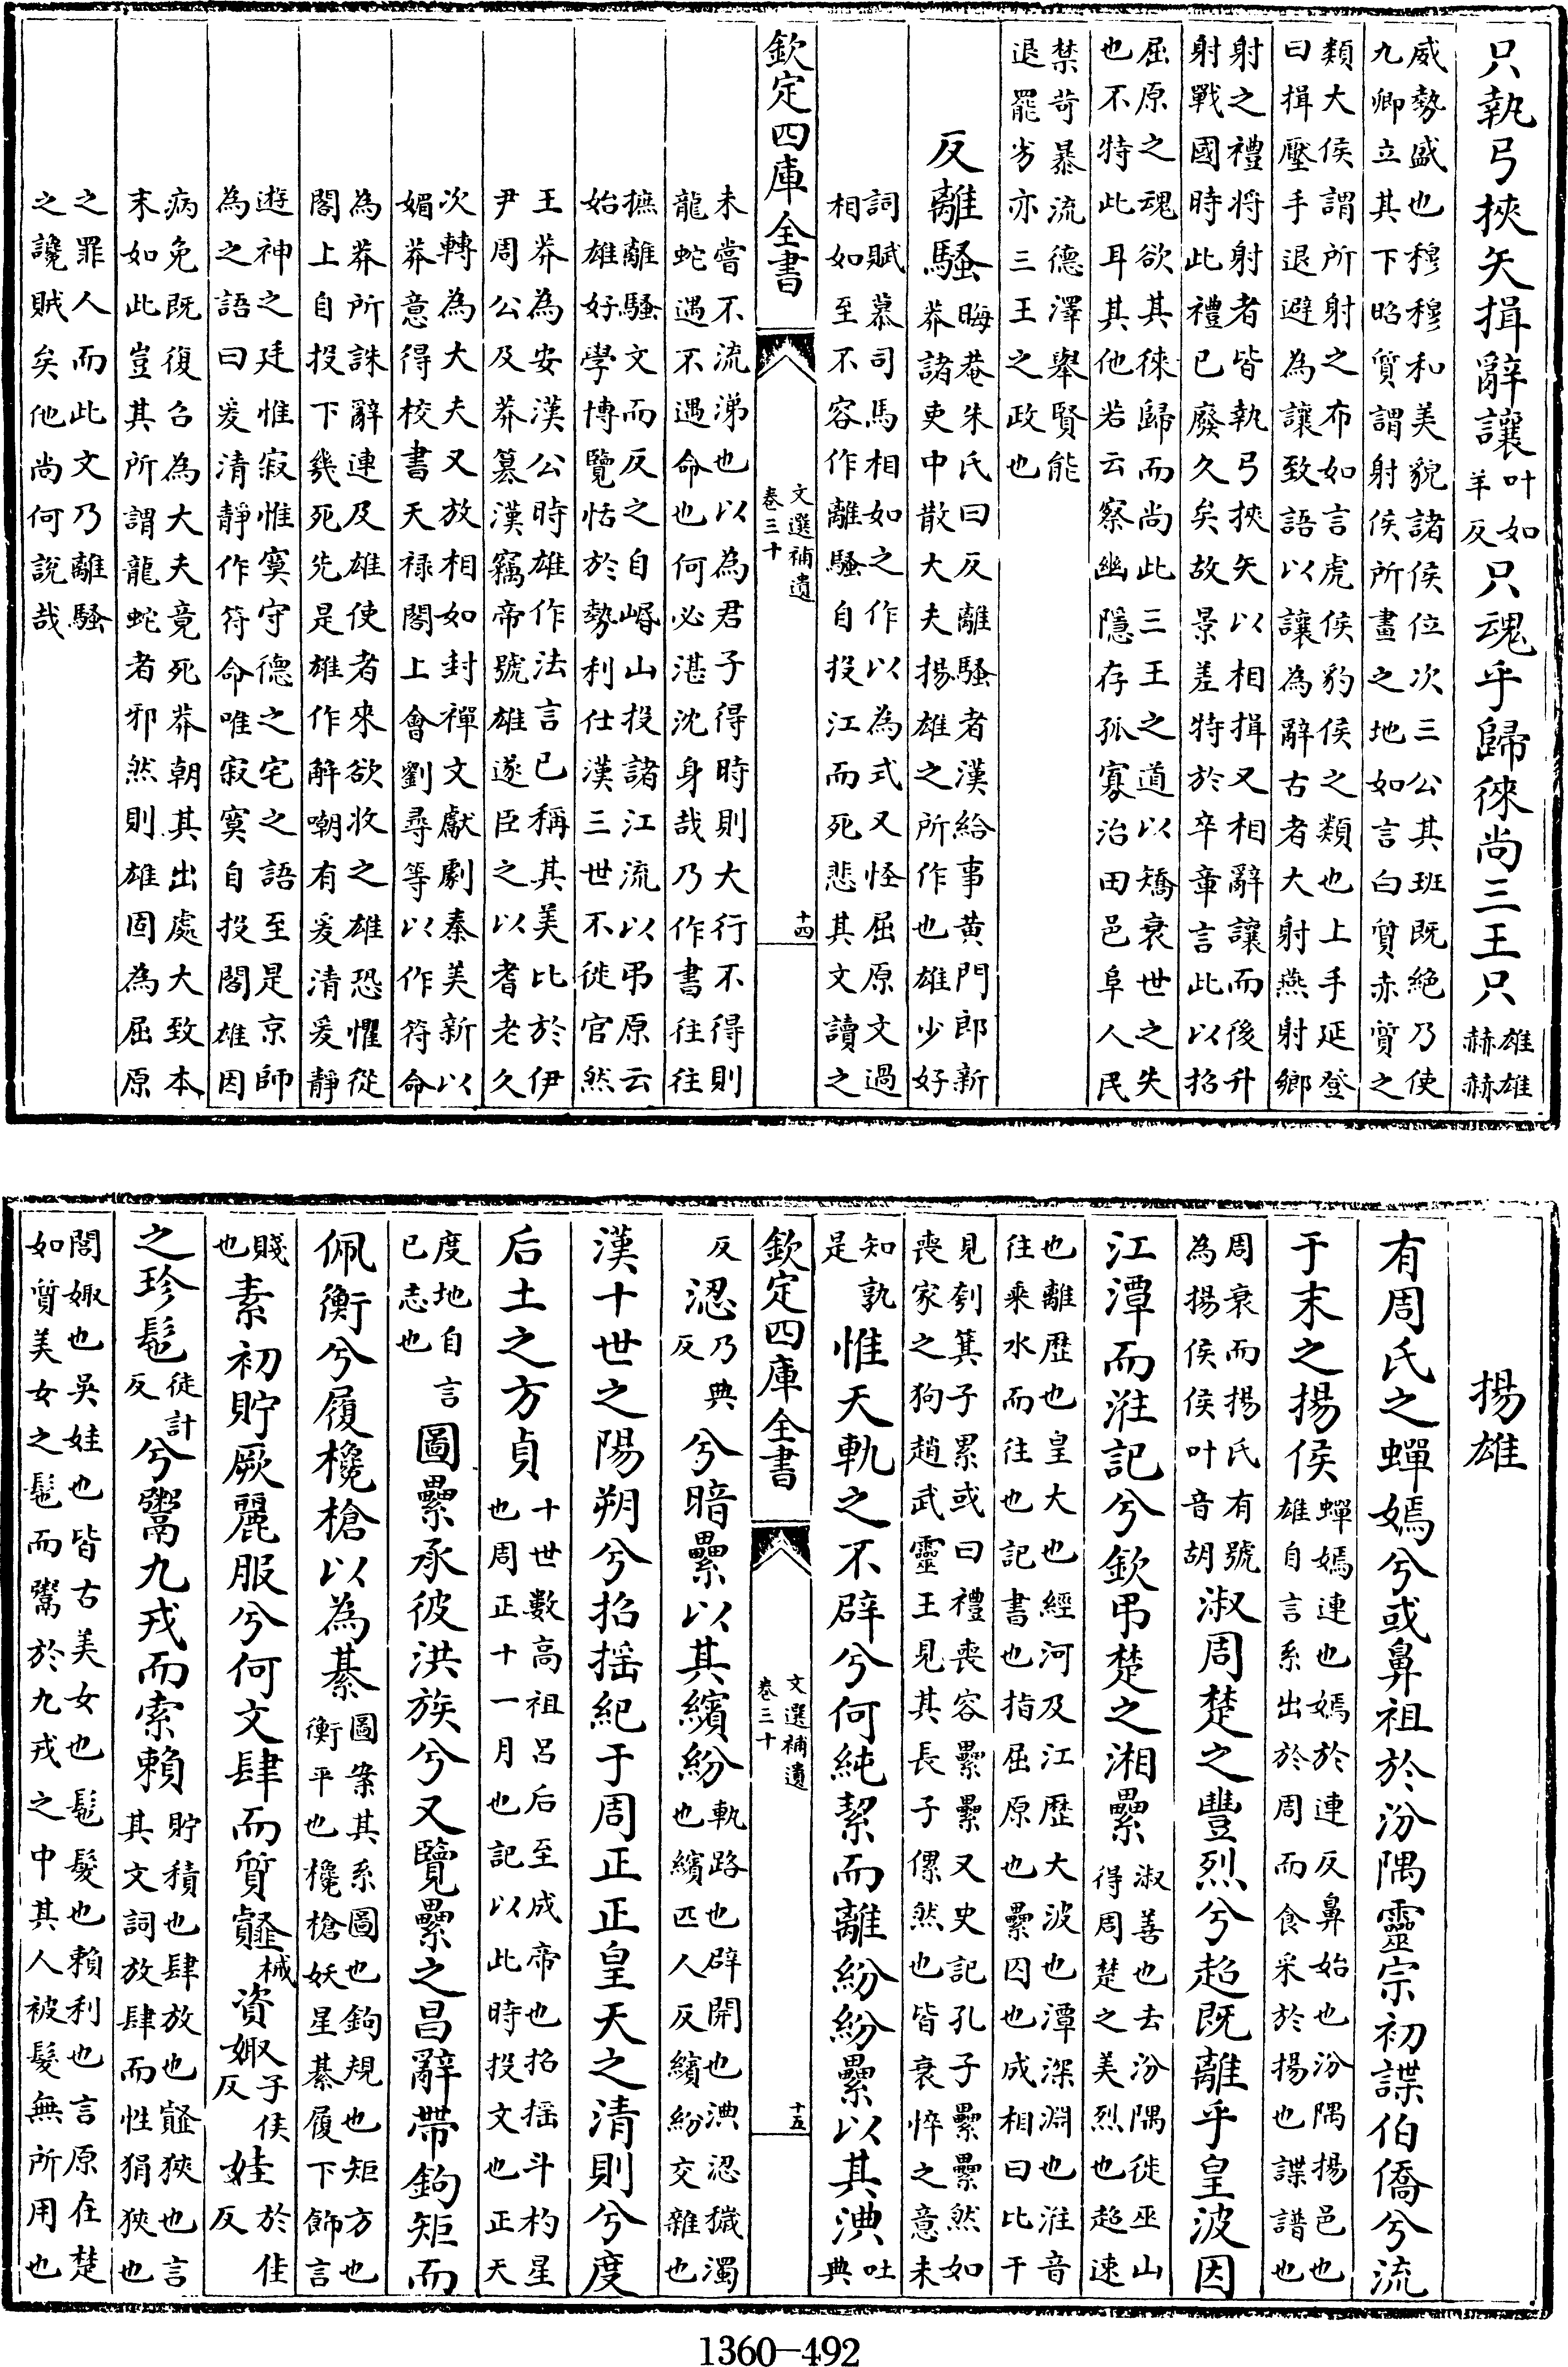 只執弓挾矢揖辭讓叶如羊反只魂乎歸徠尚三王只雄雄赫赫
威勢盛也穆穆和美貌諸侯位次三公其班既絶乃使
九卿立其下昭質謂射侯所畫之地如言白質赤質之
類大侯謂所射之布如言虎侯豹侯之類也上手延登
曰揖壓手退避為讓致語以讓為辭古者大射燕射鄉
射之禮將射者皆執弓挾矢以相揖又相辭讓而後升
射戰國時此禮已廢久矣故景差特於卒章言此以招
屈原之魂欲其徠歸而尚此三王之道以矯衰世之失
也不特此耳其他若云察幽隱存孤寡治田邑阜人民
禁苛暴流德澤舉賢能
退罷劣亦三王之政也
反離騷
晦菴朱氏曰反離騷者漢給事黄門郎新
莽諸吏中散大夫揚雄之所作也雄少好
詞賦慕司馬相如之作以為式又怪屈原文過
相如至不容作離騷自投江而死悲其文讀之
欽定四庫全書
文選補遺
卷三十
十四
未嘗不流涕也以為君子得時則大行不得則
龍蛇遇不遇命也何必湛沈身哉乃作書往往
摭離騷文而反之自㟭山投諸江流以弔原云
始雄好學博覽恬於勢利仕漢三世不徙官然
王莽為安漢公時雄作法言已稱其美比於伊
尹周公及莽簒漢竊帝號雄遂臣之以耆老久
次轉為大夫又放相如封禪文獻劇秦美新以
媚莽意得校書天禄閣上會劉尋等以作符命
為莽所誅辭連及雄使者來欲收之雄恐懼從
閣上自投下幾死先是雄作解嘲有爰清爰靜
遊神之廷惟寂惟寞守德之宅之語至是京師
為之語曰爰清靜作符命唯寂寞自投閣雄因
病免既復召為大夫竟死莽朝其出處大致本
末如此豈其所謂龍蛇者邪然則雄固為屈原
之罪人而此文乃離騷
之讒賊矣他尚何說哉
揚雄
有周氏之蟬嫣兮或鼻祖於汾隅靈宗初諜伯僑兮流
于末之揚侯
蟬嫣連也嫣於連反鼻始也汾隅揚邑也
雄自言系出於周而食采於揚也諜譜也
周衰而揚氏有號
為揚侯侯叶音胡
淑周楚之豐烈兮超既離乎皇波因
江潭而淮記兮欽弔楚之湘纍
淑善也去汾隅徙巫山
得周楚之美烈也超速
也離歷也皇大也經河及江歷大波也潭深淵也淮音
往乘水而往也記書也指屈原也纍囚也成相曰比干
見刳箕子累或曰禮喪容纍纍又史記孔子纍纍然如
喪家之狗趙武靈王見其長子傫然也皆衰悴之意未
知孰
是
惟天軌之不辟兮何純絜而離紛紛纍以其淟吐典
欽定四庫全書
文選補遺
卷三十
十五
反淴乃典反兮暗纍以其繽紛
軌路也辟開也淟淴穢濁
也繽匹人反繽紛交雜也
漢十世之陽朔兮招揺紀于周正正皇天之清則兮度
后土之方貞
十世數高祖吕后至成帝也招揺斗杓星
也周正十一月也記以此時投文也正天
度地自言
已志也
圖纍承彼洪族兮又覽纍之昌辭帶鉤矩而
佩衡兮履欃槍以為綦
圖案其系圖也鉤規也矩方也
衡平也欃槍妖星綦履下飾言
賤
也
素初貯厥麗服兮何文肆而質䪥械資娵子侯反娃於佳反
之珍髢徒計反兮鬻九戎而索賴
貯積也肆放也䪥狹也言
其文詞放肆而性狷狹也
閭娵也吳娃也皆古美女也髢髮也賴利也言原在楚
如質美女之髢而鬻於九戎之中其人被髮無所用也
1360-492